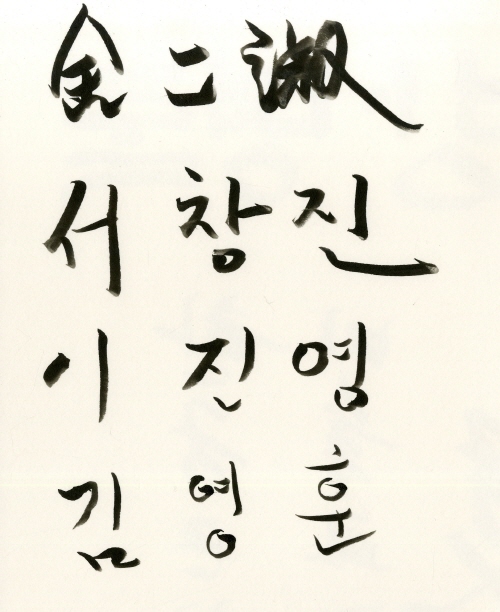 金二淑
서창진
이진영
김영훈